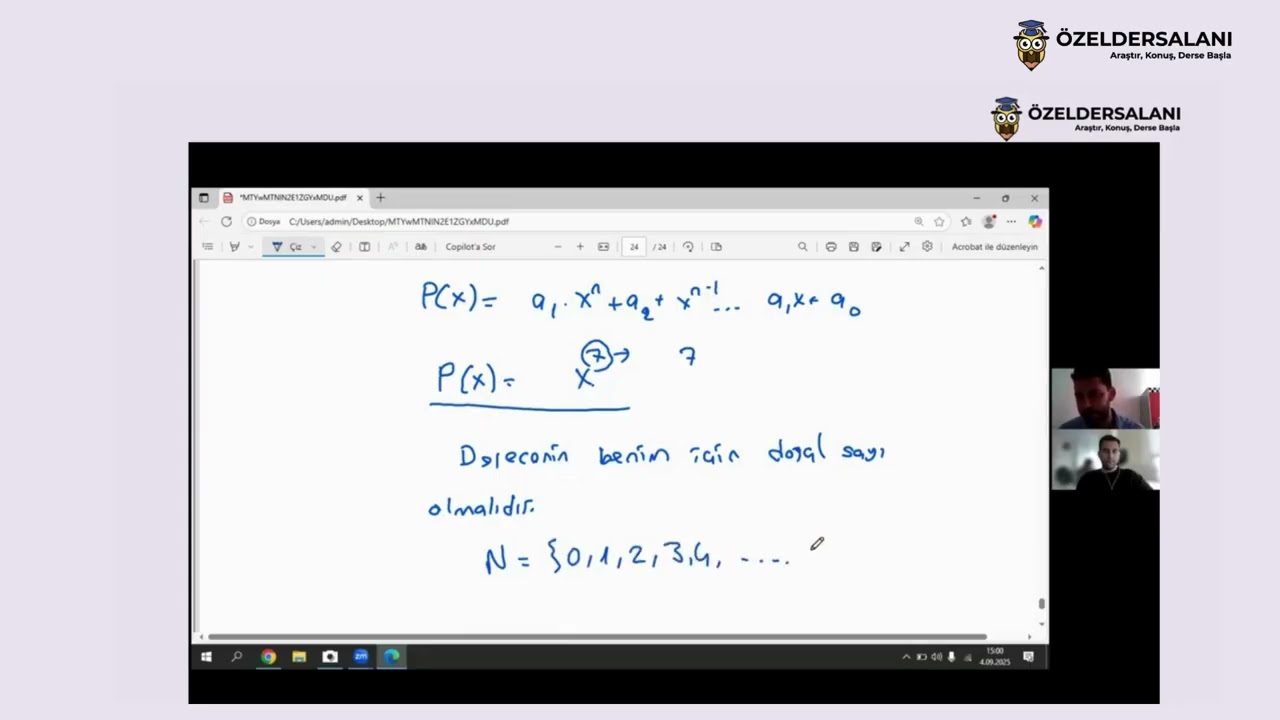 ÖZELDERSALANI
Araştır, Konuş, Derse Başla
ÖZELDERSALANI
Araştır, Konuş, Derse Başla
*MTYwMTNlN2E1ZGYxMDU.pdf
Dosya C:/Users/admin/Desktop/MTYwMTNlN2E1ZGYxMDU.pdf
Çiz
aあ
Copilot'a Sor
24 / 24
Acrobat ile düzenleyin
P(x) = a₁ . xⁿ + a₂ + xⁿ⁻¹ ... a₁x + a₀
P(x) = x⁷ → 7
Derecenin benim için doğal sayı
olmalıdır.
N = {0, 1, 2, 3, 4, .....
zm
15:00
4.09.2025